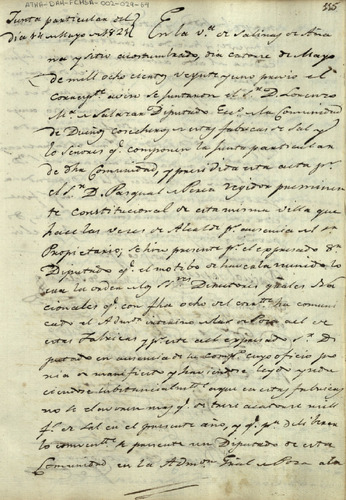 ATHA-DAH-FCMSA-002-029-04
336
Junta particular del
dia 14 de Mayo de 1821
En la v.ª de Salinas de Aña
na y sitio acostumbrado, dia catorce de Mayo
de mil ocho cientos veynte y uno previo el
aviso se juntaron el S.r D. Lorenzo
M.ª de Salazar Diputado de la Comunidad
de Dueños de estas fabricas de Sal y
los Señores q.e componen la Junta particular
de dha Comunidad, y presidida esta acta p.r
el S.r D. Pasqual de regidor preeminen
te Constitucional de esta misma villa que
hace las veces de Alcalde p.r ausencia del
Propietario; se hizo presente p.r el expresado
Diputado q.e el motibo de hacerla reunido lo
era la orden de los S.res Directores grales Na
cionales q.e con fha ocho del corr.te ha comuni
cado el Adm.or
estas Fabricas, y p.r este al expresado S.r Di
putado en ausencia cuyo oficio po
nia de manifiesto y haviendose leydo
que en estas fabricas
no se elavoren mas q.e de trece a catorce mil
f.s de sal en el presente año, y q.e p.a
lo convente. se presente un Diputado de esta
Comunidad en la Adm.on Gral de Poza a la